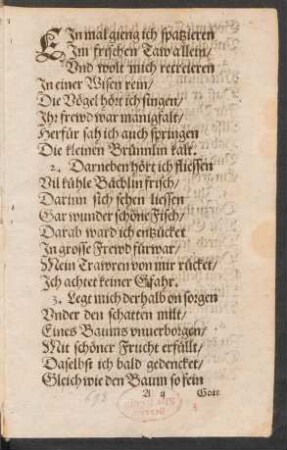 EIn mal gieng ich spatzieren
Im frischen Taw allein/
Vnd wolt mich recreieren
In einer Wisen rein/
Die Vögel hört ich singen/
Ihr frewd war manigfalt/
Herfür sah ich auch springen
Die kleinen Brünnlin kalt.
2. Darneben hört ich fliessen
Vil kühle Bächlin frisch/
Darinn sich sehen liessen
Gar wunder schöne Fisch/
Darab ward ich entzücket
In grosse Frewd fürwar/
Mein Trawren von mir rücket/
Ich achtet keiner Gfahr.
3. Legt mich derhalb on sorgen
Vnder den schatten milt/
Eines Baums vnuerborgen/
Mit schöner Frucht erfüllt/
Daselbst ich bald gedencket/
Gleich wie den Baum so fein
A ij Gott